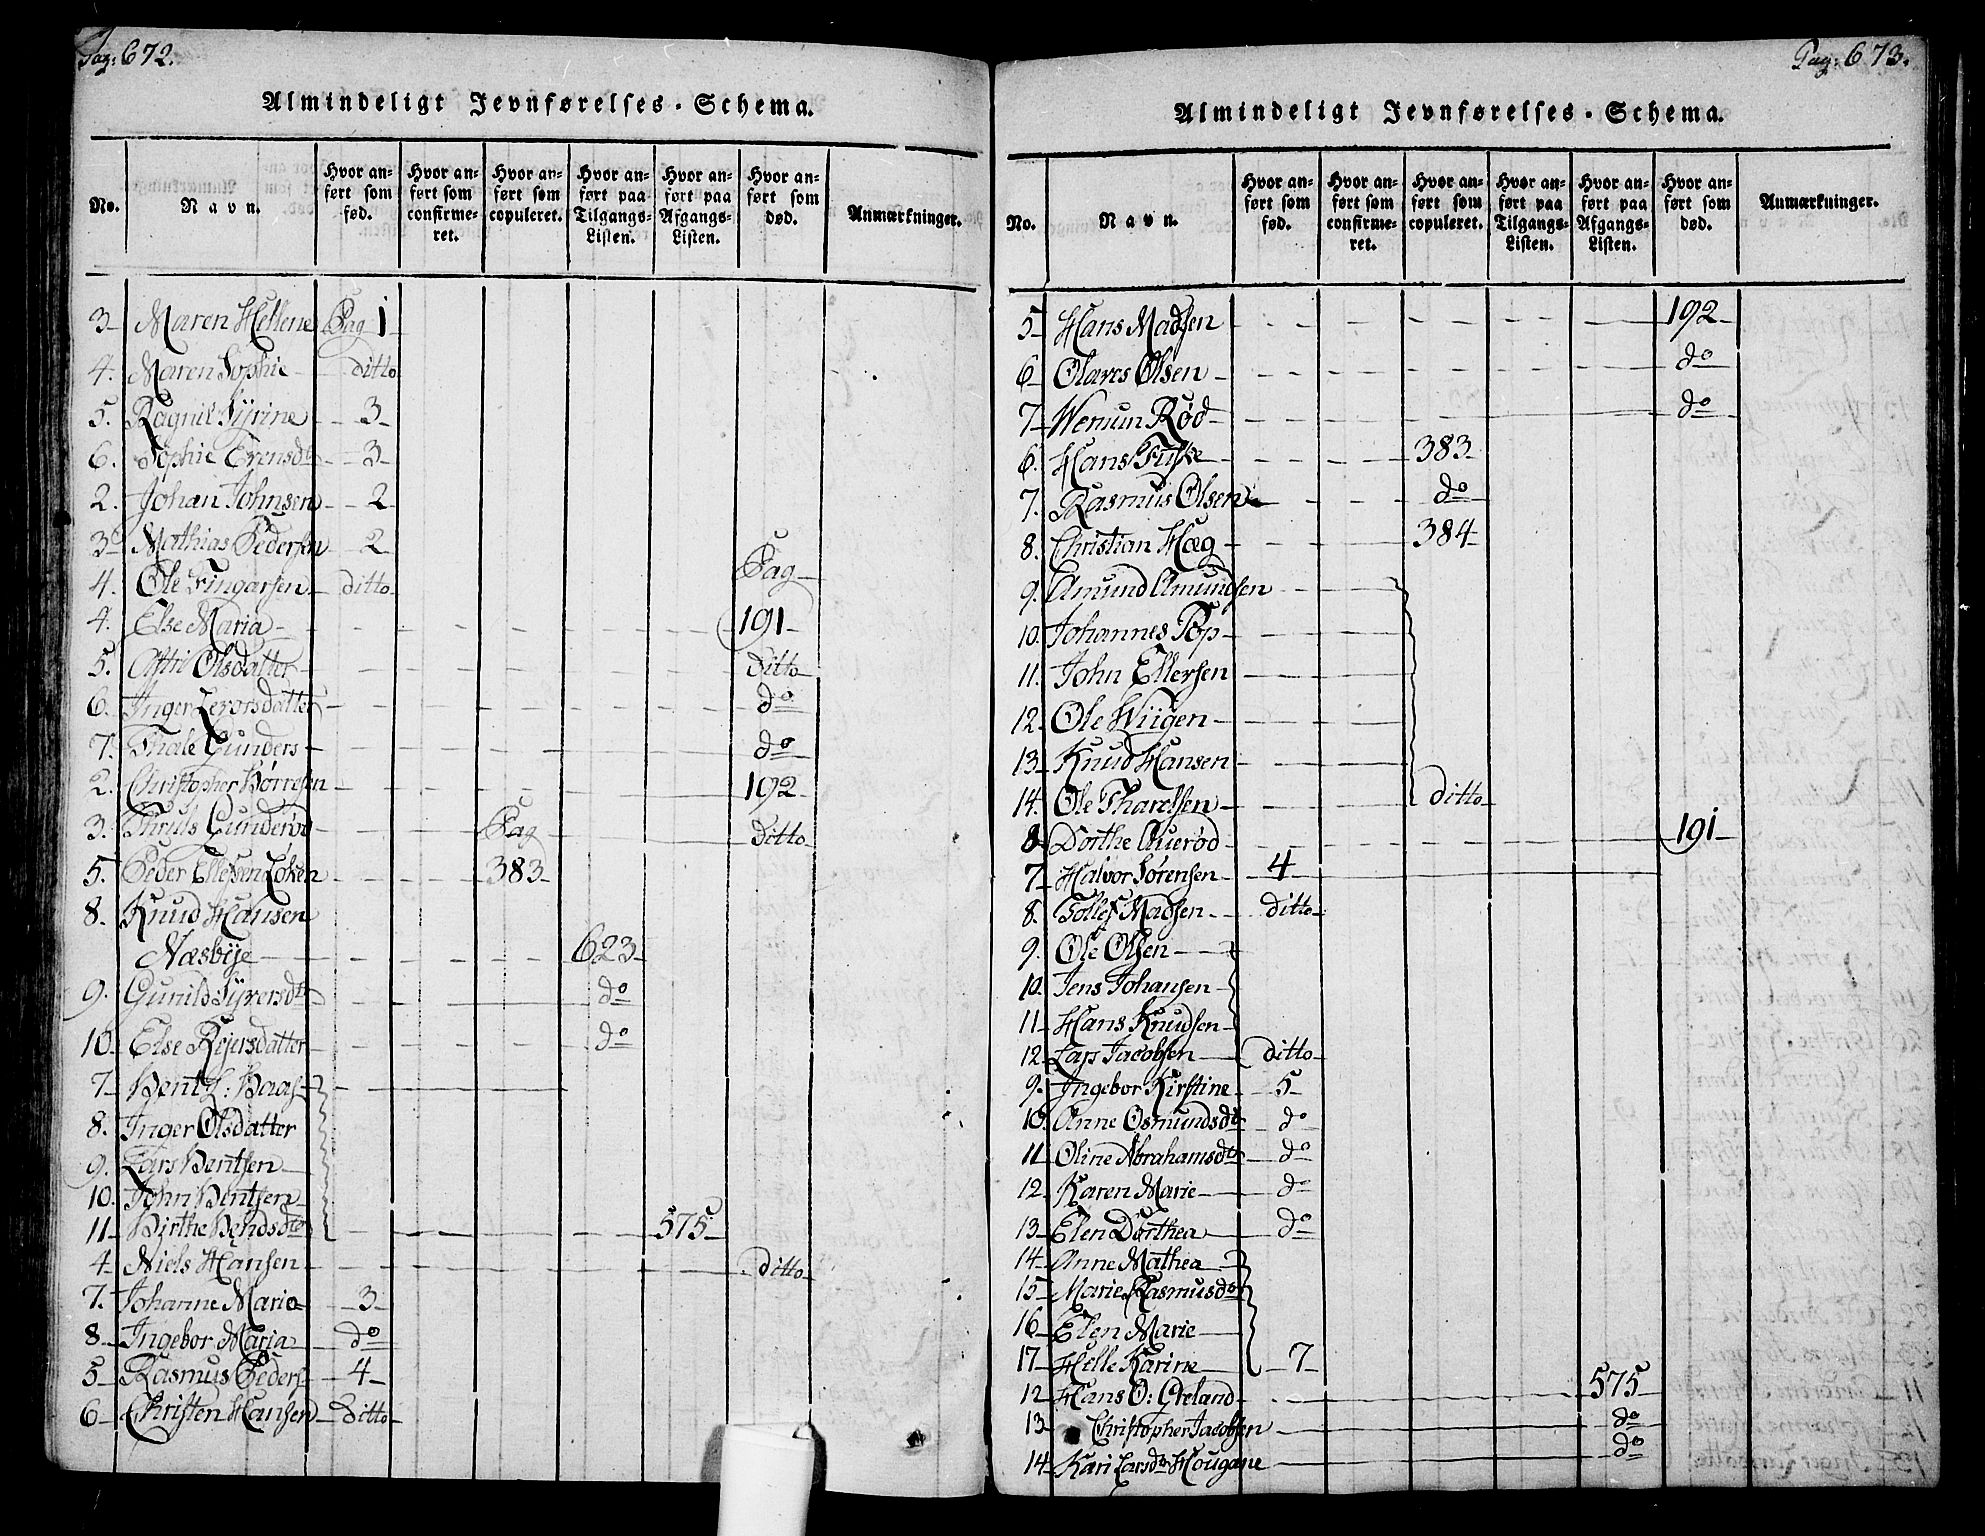 Pag: 672.
Almindeligt Jevnførelses-Schema.
No.
Navn.
Hvor anført som fød.
Hvor anført som confirmeret.
Hvor anført som copuleret.
Hvor anført paa Tilgangs-Listen.
Hvor anført paa Afgangs-Listen.
Hvor anført som død.
Anmærkninger.
3 Maren Hellene Pag 1
4. Maren Sophie ditto
5. Ragnil Syrine 3
6. Sophie Erensdr 3
2. Johan Johnsen 2
3 Mathias Pedersen 2
4. Ole Fingarsen ditto
Pag
4. Else Maria 191
5. Astri Olsdatter Ditto
6. Inger Levorsdatter do
7. Thale Gunders do
2. Christopher Børresen 192
3. Thruls Gunderød Ditto
Pag
5. Peder Ellefsen Løken 383
8. Knud Hansen
Næsbye 623
9. Gunild Syversdtr do
10. Else Rejersdatter do
7 Bent L: Baas
8. Inger Olsdatter
9. Lars Bentsen
10. John Bentsen
11 Birthe Bendsdtr 575
4 Niels Hansen ditto
7. Johanne Maria 3
8 Ingebor Maria do
5 Rasmus Peders 4
6 Christen Hansen Ditto
Pag: 673.
Almindeligt Jevnførelses-Schema.
No.
Navn.
Hvor anført som fød.
Hvor anført som confirmeret.
Hvor anført som copuleret.
Hvor anført paa Tilgangs-Listen.
Hvor anført paa Afgangs-Listen.
Hvor anført som død.
Anmærkninger.
5 Hans Madsen 192
6 Olaves Olsen do
7 Wenum Rød do
6. Hans Fuske 383
7. Rasmus Olsen do
8. Christian Hæg 384
9. Amund Amundsen
10. Johannes Pop
11. John Ellersen
12. Ole Wiigen
13 Knud Hansen
14. Ole Tharelsen ditto
8 Dorthe Auerød 191
7 Halvor Sørensen 4
8. Tollef Madsen ditto
9. Ole Olsen
10. Jens Johansen
11 Hans Knudsen
12. Lars Jacobsen ditto
9. Ingebor Kirstine 5
10. Anne Osmundsdtr do
11 Oline Abrahamsdtr do
12. Karen Marie do
13 Elen Dorthea do
14 Anne Mathea
15 Marie Rasmusdr
16 Elen Marie
17 Helle Karine 7
12 Hans O: Greland 575
13 Christopher Jacobsen do
14 Kari Larsdr Hougane do